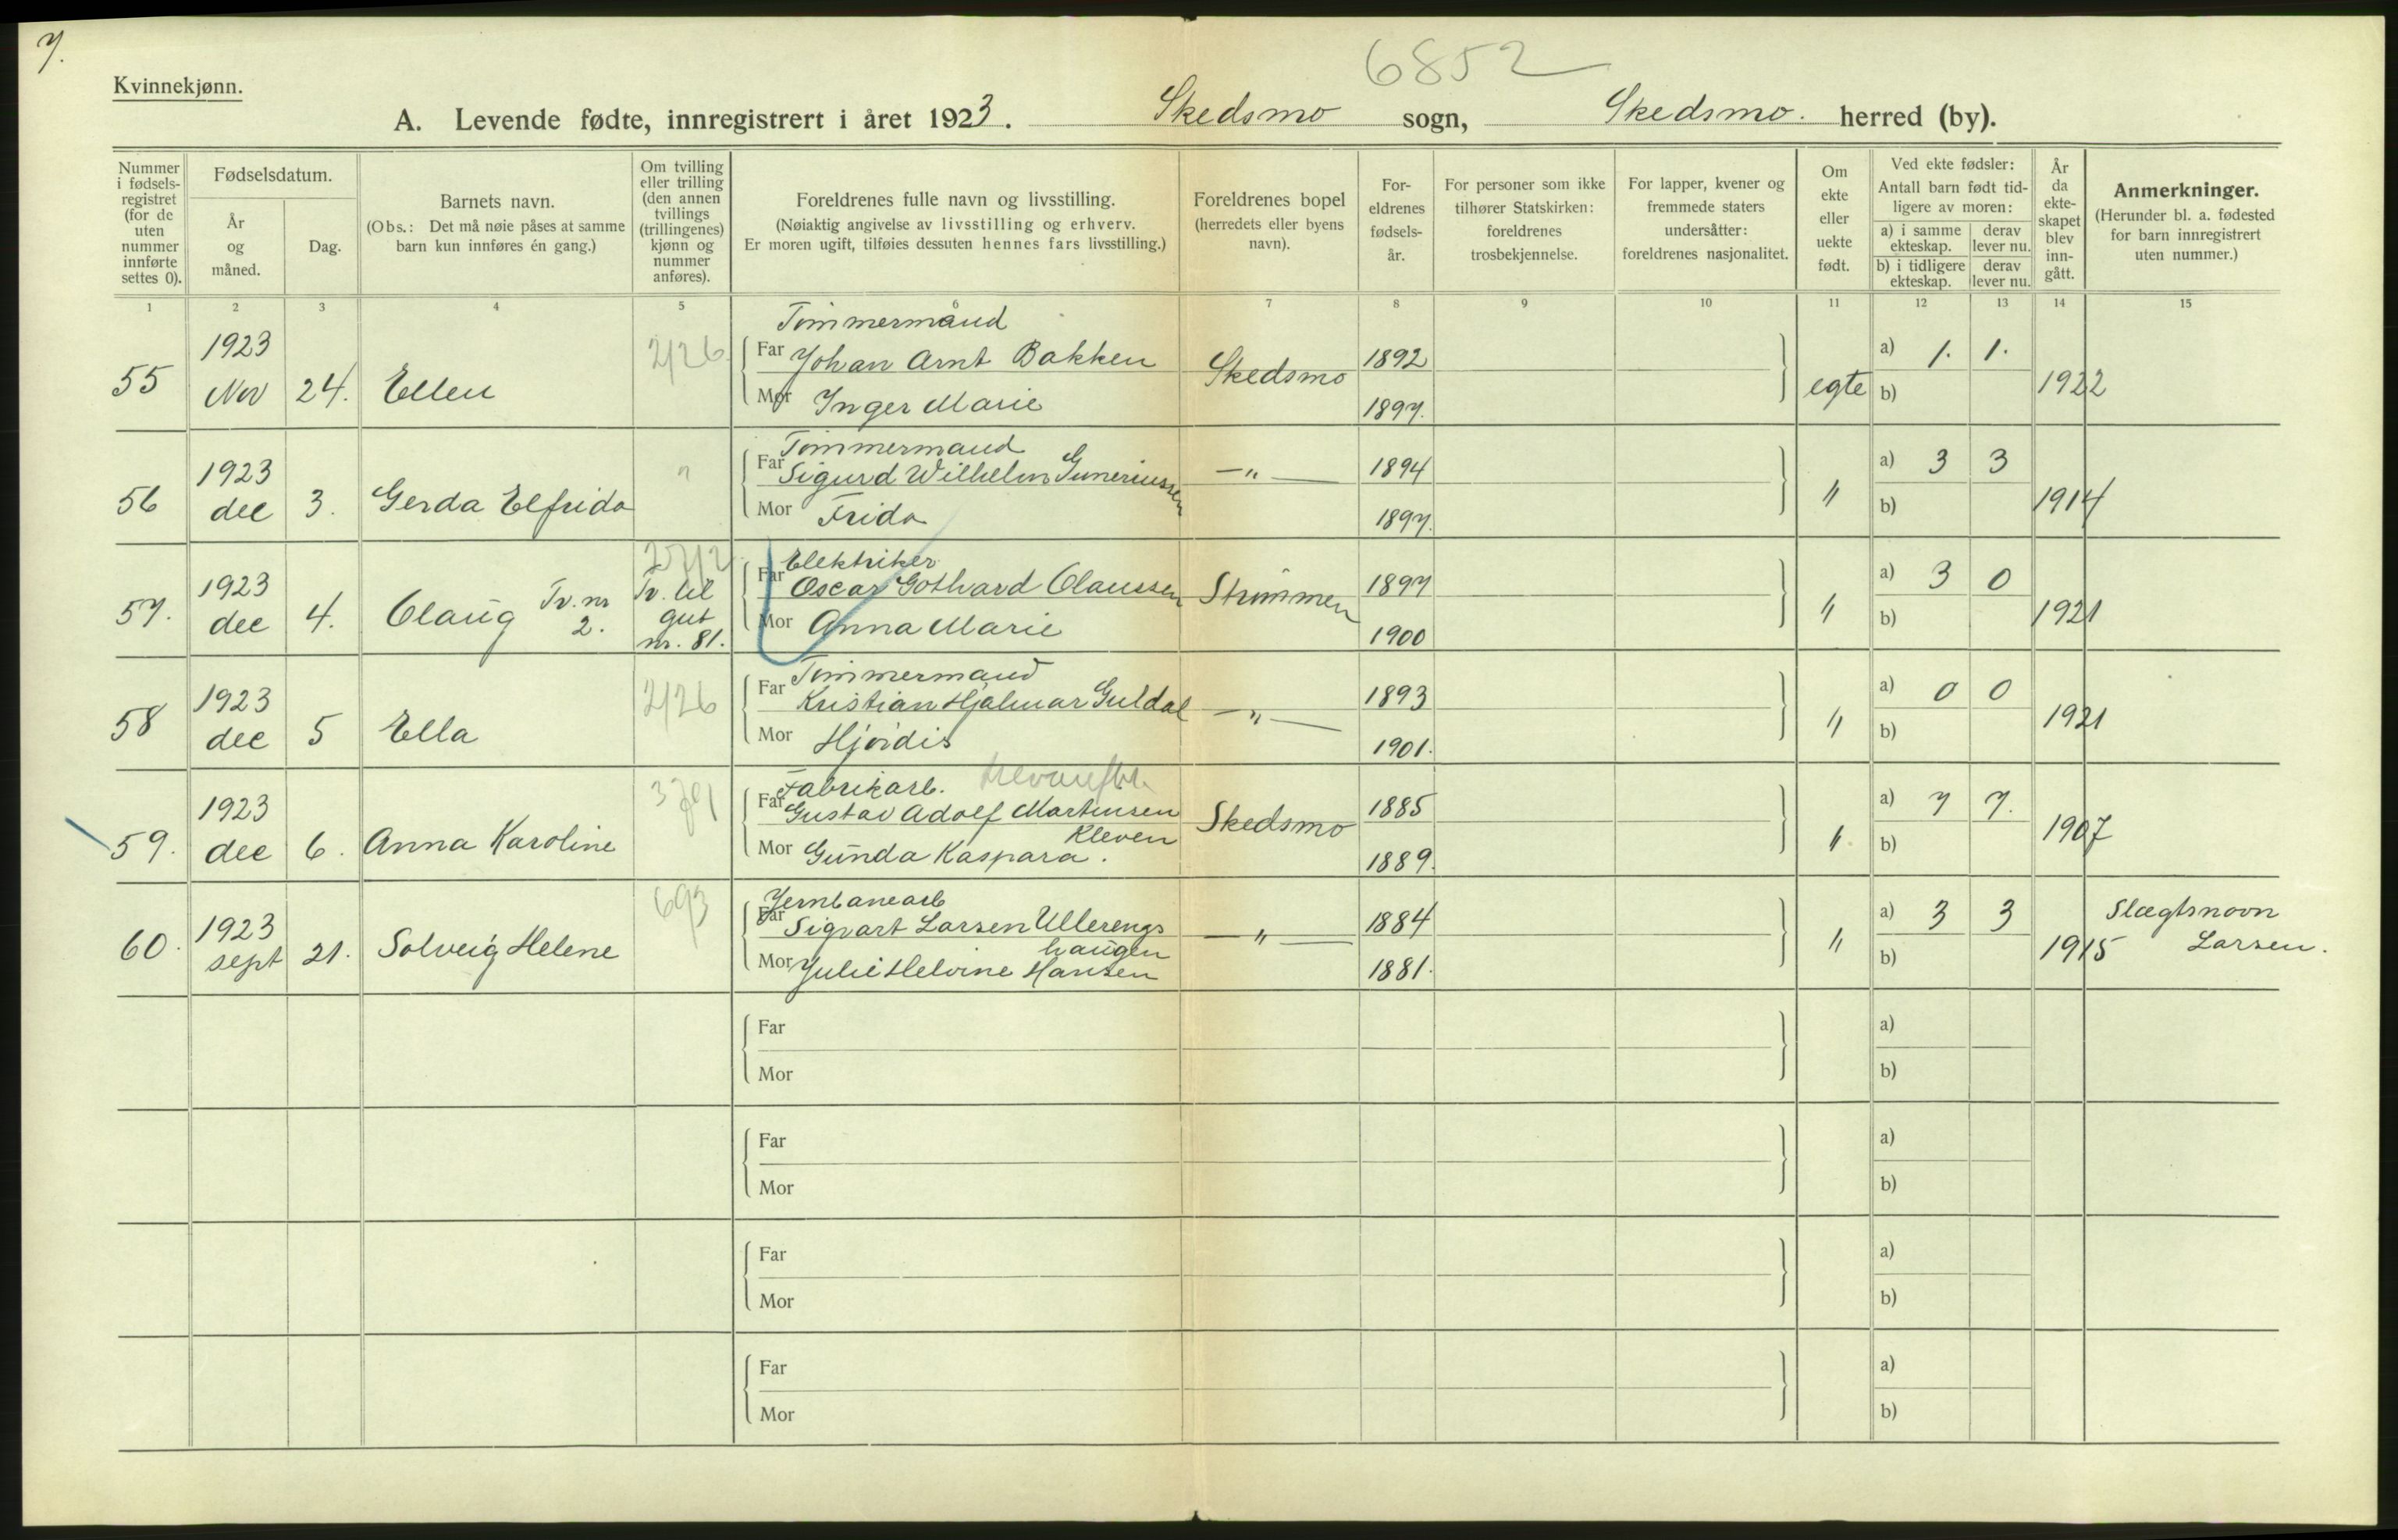 7.
6852
Kvinnekjønn.
A. Levende fødte, innregistrert i året 1923. Skedsmo sogn, Skedsmo. herred (by).
Nummer i fødsels-registret (for de uten nummer innførte settes 0).
Fødselsdatum.
År og måned.
Dag.
Barnets navn.
(Obs.: Det må nøie påses at samme barn kun innføres én gang.)
Om tvilling eller trilling (den annen tvillings (trillingenes) kjønn og nummer anføres).
Foreldrenes fulle navn og livsstilling.
(Nøiaktig angivelse av livsstilling og erhverv.
Er moren ugift, tilføies dessuten hennes fars livsstilling.)
Foreldrenes bopel
(herredets eller byens navn).
For-eldrenes fødsels-år.
For personer som ikke tilhører Statskirken: foreldrenes trosbekjennelse.
For lapper, kvener og fremmede staters undersåtter: foreldrenes nasjonalitet.
Om ekte eller uekte født.
Ved ekte fødsler:
Antall barn født tid-ligere av moren:
a) i samme ekteskap.
derav lever nu.
b) i tidligere ekteskap.
derav lever nu.
År da ekte-skapet blev inn-gått.
Anmerkninger.
(Herunder bl. a. fødested for barn innregistrert uten nummer.)
1 2 3 4 5 6 7 8 9 10 11 12 13 14 15
Tømmermand
55 1923 Nov 24. Ellen 2/26. Far Johan Arnt Bakken Skedsmo 1892 egte a) 1. 1. 1922
Mor Inger Marie 1897. b)
Tømmermand
56 1923 dec 3. Gerda Elfrida " Far Sigurd Wilhelm Guneriussen —"— 1894 " a) 3 3 1914
Mor Frida 1897. b)
Elektriker
57. 1923 dec 4. Olaug Tv. nr 2. Tv. til gut nr. 81. Far Oscar Gothard Olaussen Strømmen 1897 " a) 3 0 1921
Mor Anna Marie 1900 b)
Tømmermand
58 1923 dec 5 Ella 2/26 Far Kristian Hjalmar Guldal —"— 1893 " a) 0 0 1921
Mor Hjørdis 1901. b)
Fabrikarb.
59. 1923 dec 6. Anna Karoline Far Gustav Adolf Martinsen Kleven Skedsmo 1885 " a) 7 7. 1907
Mor Gunda Kaspara. 1889. b)
Jernbanearb
60. 1923 sept 21. Solveig Helene 693 Far Sigvart Larsen Ullerengshaugen —"— 1884 " a) 3 3 1915 Slægtsnavn Larsen.
Mor Julie Helvine Hansen 1881. b)
Far a)
Mor b)
Far a)
Mor b)
Far a)
Mor b)
Far a)
Mor b)